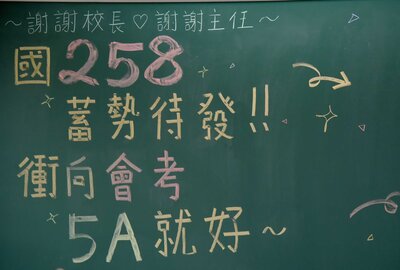 ～謝謝校長♡謝謝主任～
國258
蓄勢待發!!
衝向會考
5A就好～